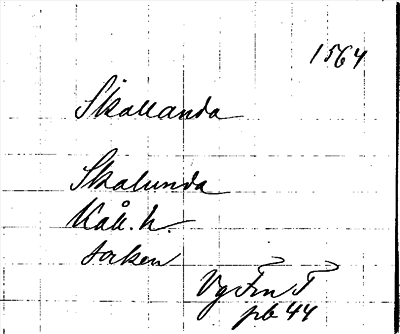 1564
Skallanda
Skalunda
Kåll. h.
socken
Vg Fm I
pb 44